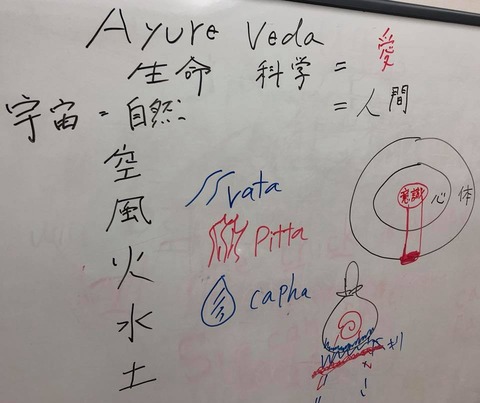 Ayure Veda
生命 科学 = 愛
宇宙 = 自然 = 人間
空
風 vata
火 Pitta
水 capha
土
意識 心 体